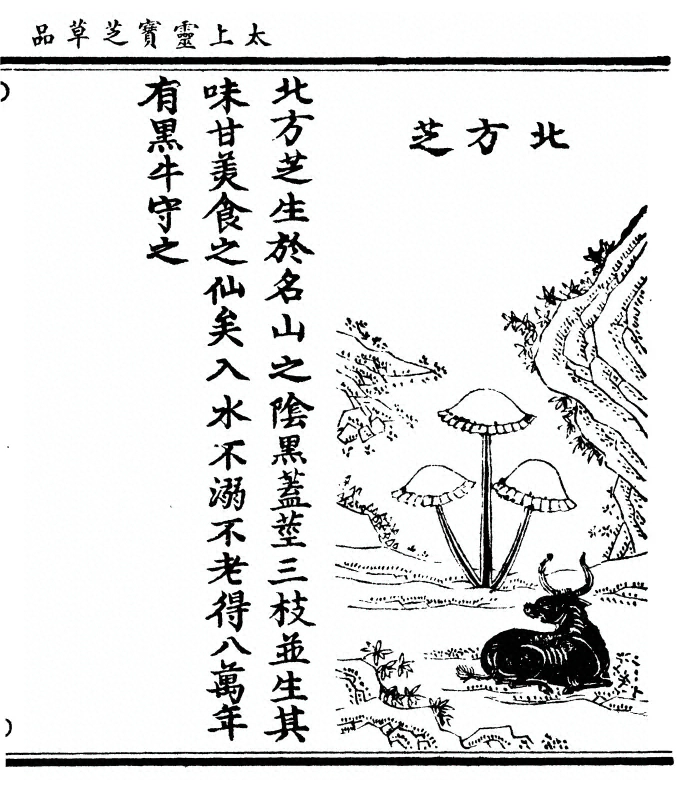 太上靈寶芝草品
北方芝
北方芝生於名山之陰黑蓋莖三枝並生其
味甘美食之仙矣入水不溺不老得八萬年
有黑牛守之